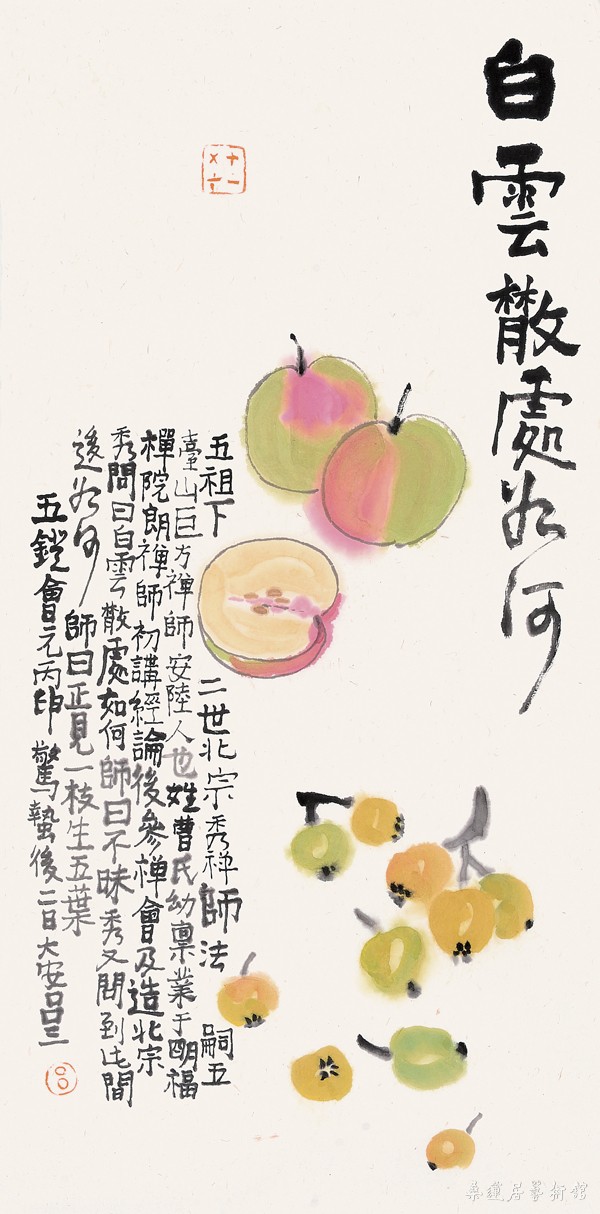 白雲散處如何
五祖下 二世北宗秀禅師法 嗣五
臺山巨方禅師安陸人也姓曹氏幼稟業于明福
禪院朗禅師初講經論後參禅會及造北宗
秀問曰白雲散處如何師曰不昧秀又問到此間
後如何師曰正見一枝生五葉
五鐙會元丙申驚蟄後二日大安吕三
桑蓮居藝術館